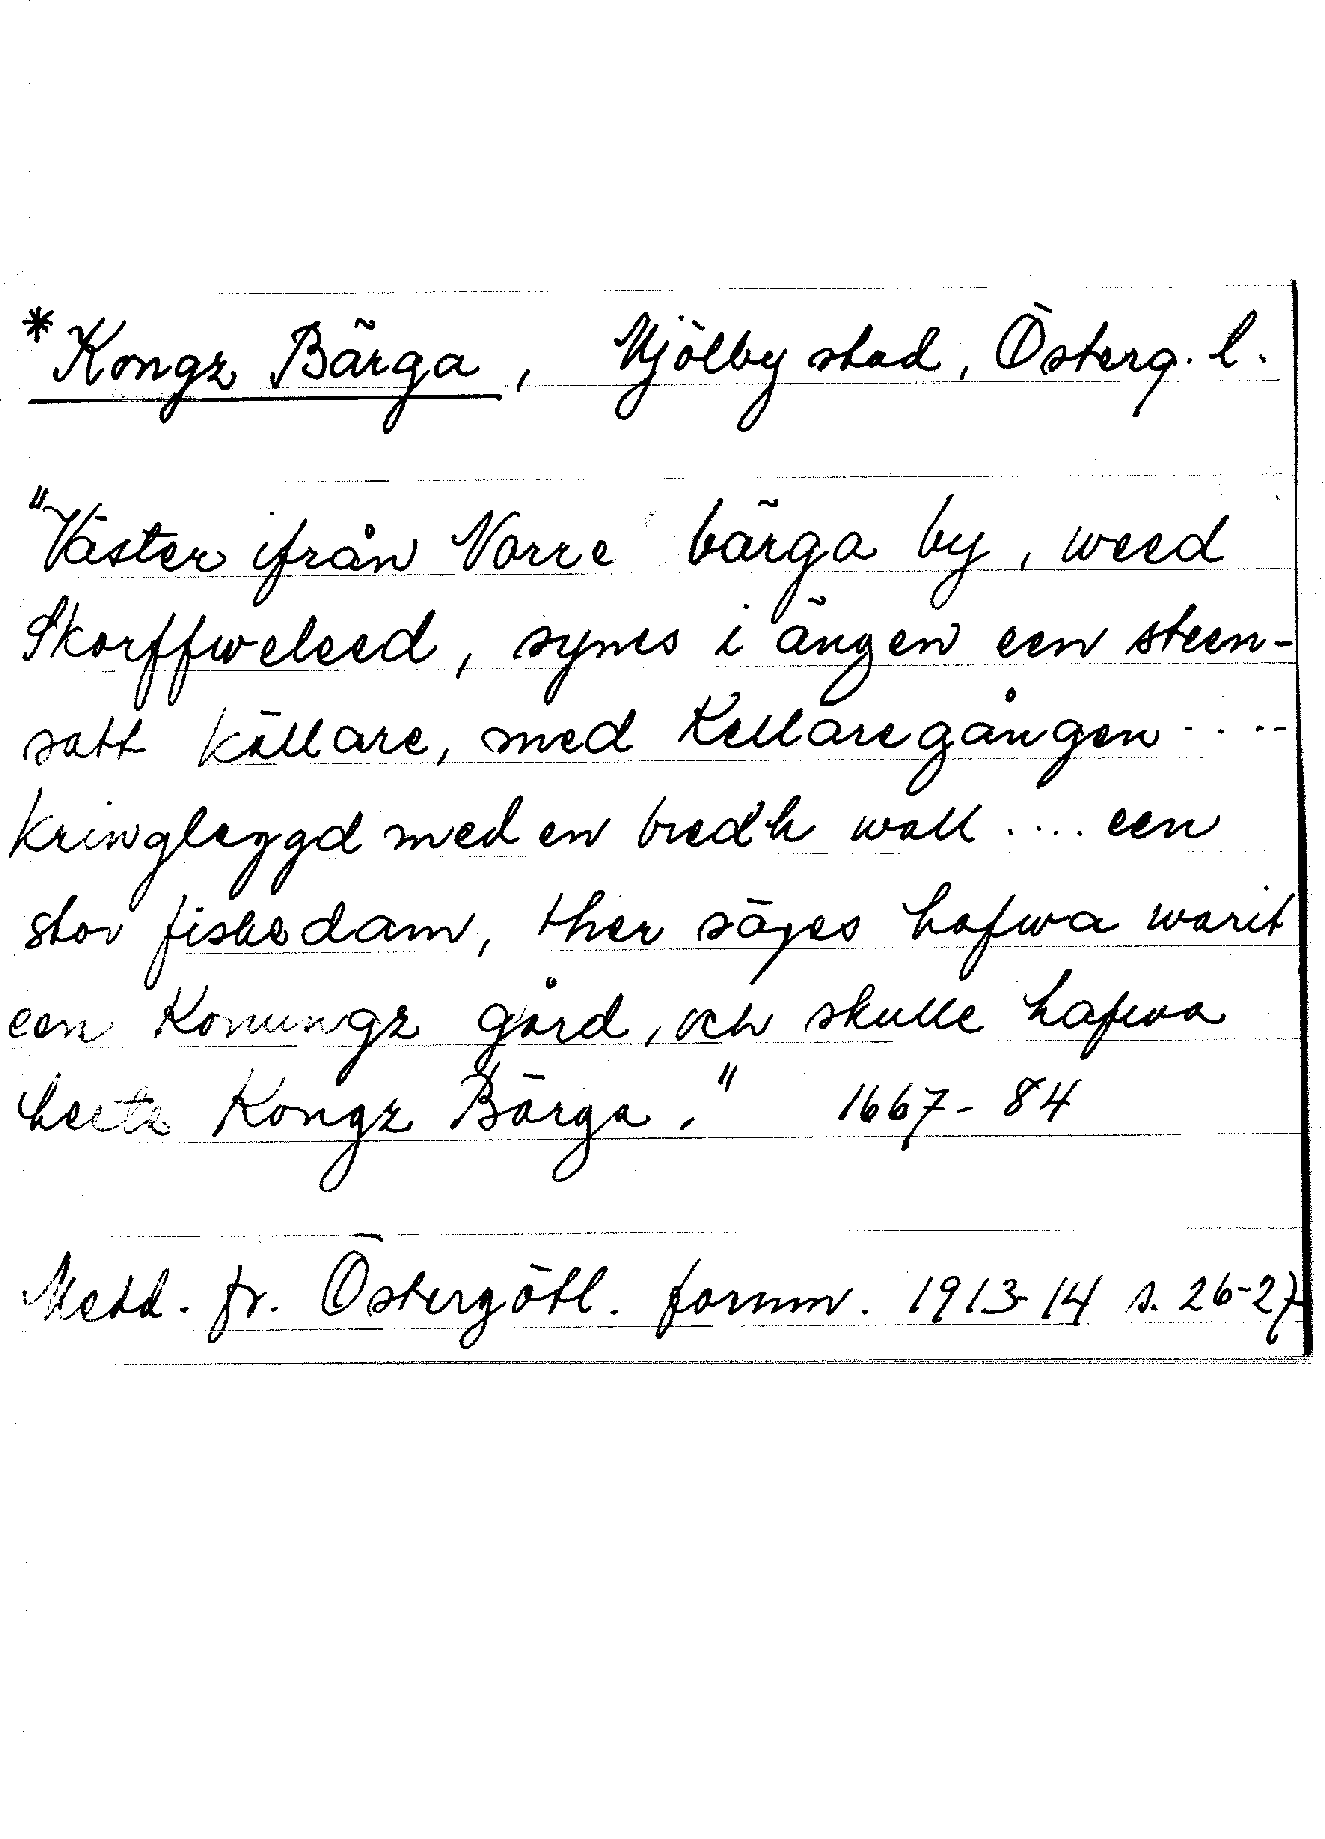 *Kongz Bärga, Mjölby stad, Österg. l.
"Väster ifrån Norre bärga by, weed
Skorffweleed, synes i ängen een steen-
satt källare, med Kellaregången ....
kringleggd med en bredh wall .... een
stor fiskedam, ther säges hafwa warit
een Konungz gård, och skulle hafwa
heeta Kongz Bärga." 1667-84
Medd. fr. Östergötl. fornm. 1913-14 s. 26-27